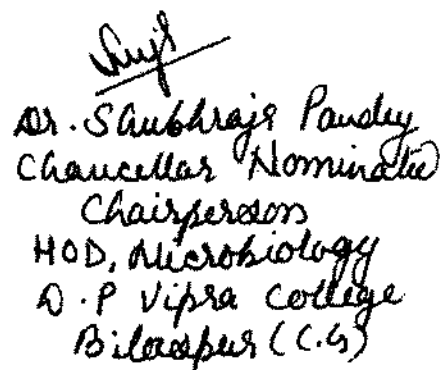 Dr. Shubhraja Pandey
Chancellar Nominated
Chairperson
HOD, Microbiology
D.P Vipra College
Bilaspur (C.G)